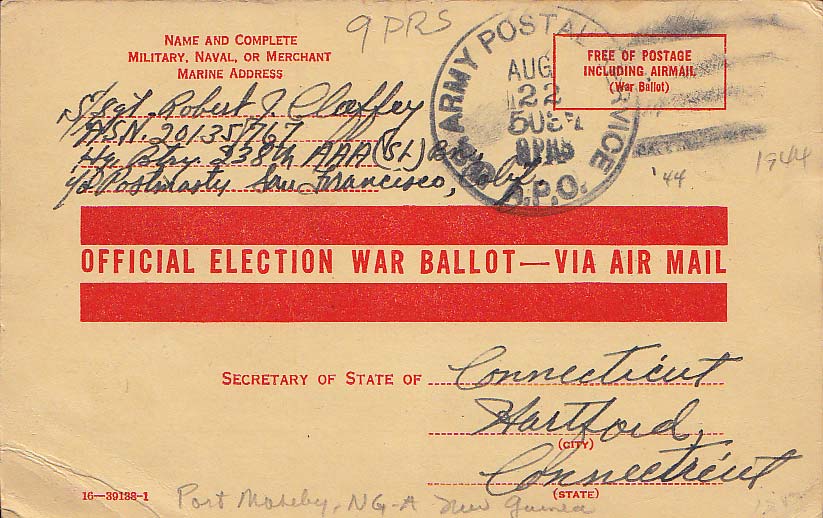 9 PRS
NAME AND COMPLETE
MILITARY, NAVAL, OR MERCHANT
MARINE ADDRESS
S/Sgt. Robert J. Claffey
ASN. 20135767
Hq. Btry. 238th AAA (SL)
c/o Postmaster San Francisco,
U.S. ARMY POSTAL SERVICE
AUG
22
A.P.O.
FREE OF POSTAGE
INCLUDING AIRMAIL
(War Ballot)
'44
1944
OFFICIAL ELECTION WAR BALLOT—VIA AIR MAIL
SECRETARY OF STATE OF Connecticut
Hartford,
(CITY)
Connecticut
(STATE)
16—39138-1
Port Moseby, NG-A New Guinea